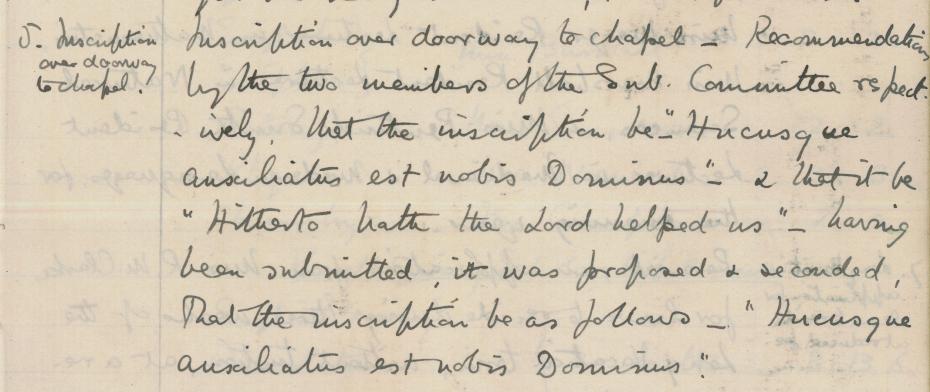 5. Inscription
over doorway
to chapel.
Inscription over doorway to chapel – Recommendation
by the two members of the Sub. Committee respect-
-ively, that the inscription be – "Hucusque
auxiliatus est nobis Dominus" – & that it be
"Hitherto hath the Lord helped us" – having
been submitted, it was proposed & seconded,
That the inscription be as follows – "Hucusque
auxiliatus est nobis Dominus".